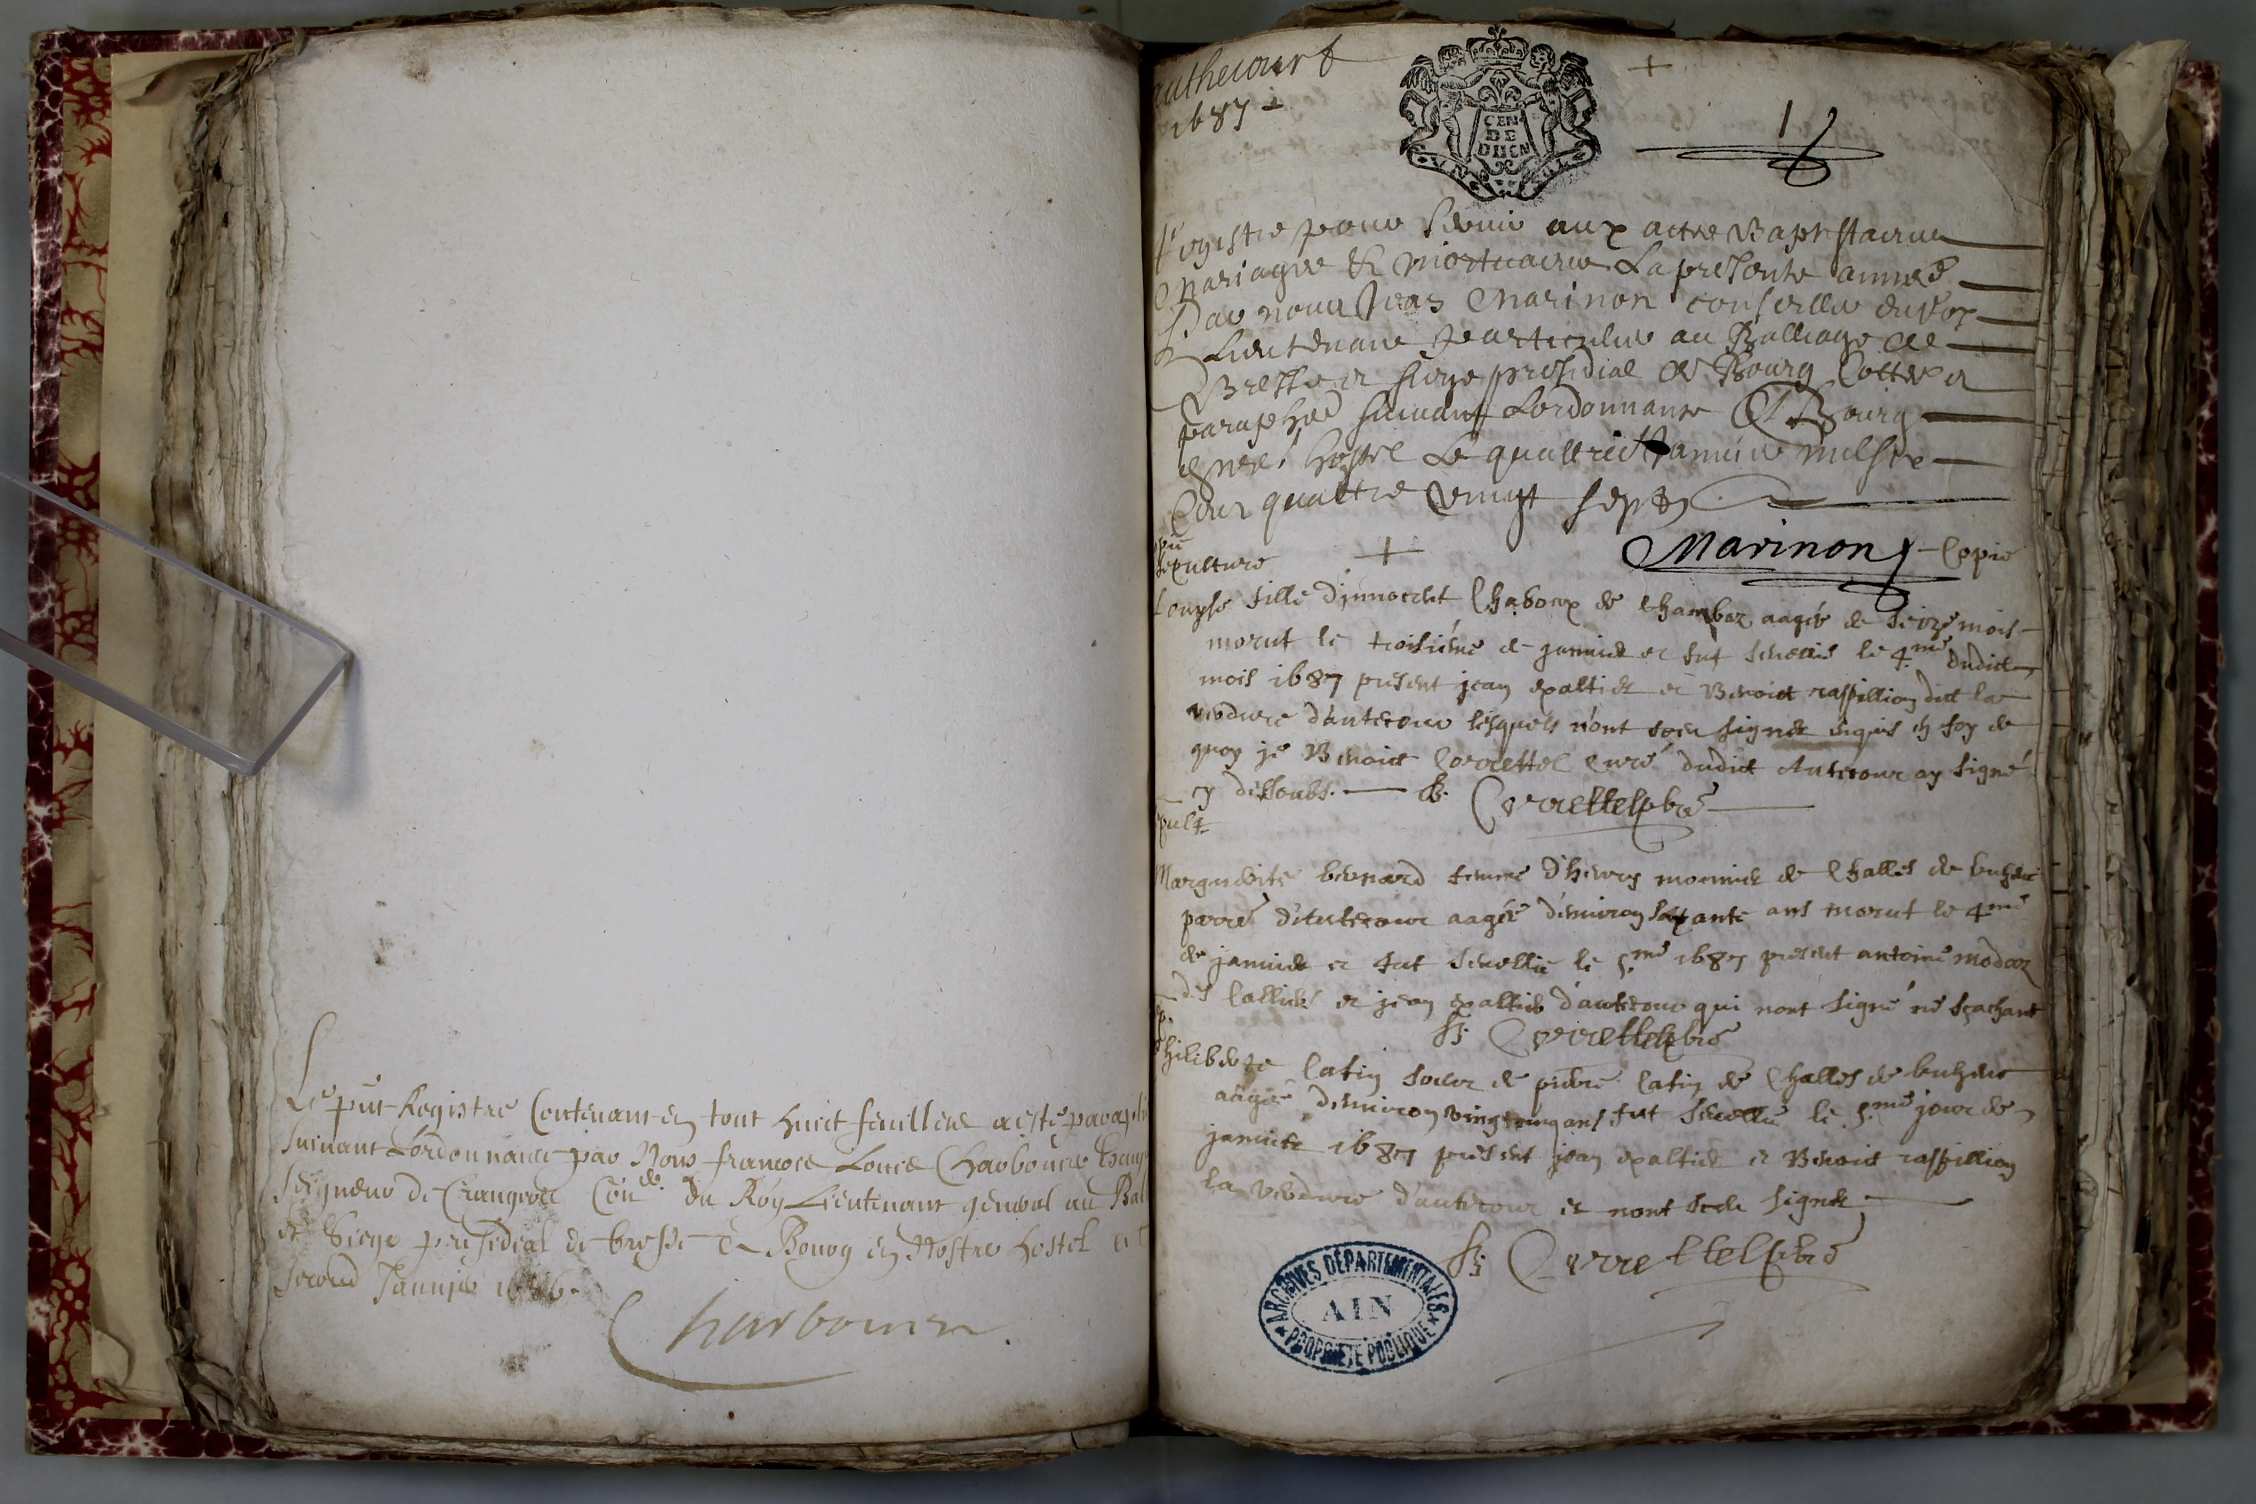 Le pnt Registre Contenant en tout huict feuillets a esté paraphé
suivant Lordonnance par Nous francois Louis Charbonnier
Seigneur de Crangeac Con.er du Roy Lieutenant general au Bal
et Siege presidial de bresse A Bourg en Nostre hostel ce
second Janvier 1686.
Charbonnier
authecourt
1687
CEN
DE
DIJCN
1
Registre pour servir aux actes Baptistaires
Mariages & mortuaires La presente année
Par nous Jean Marinon conseiller du Roy
Lieutenant particulier au Balliage de
Bresse et siege presidial de Bourg Cotté et
paraphé suivant Lordonnance A Bourg
en nre hostel Le quattre Janvier mil six
Cens quattre vingt sept
Marinon Copie
sepulture
Louyse fille d'innocent Chaboux de Chambez aagée de seize mois
morut le troisiéme de janvier et fut sevelie le 4.me dudict
mois 1687 present jean expaltier et Benoict raspillion dict la
verdure d'autecour lesquels n'ont sceu signer enquis en foy de
quoy je Benoict Correttel curé dudict Autecour ay signé
cy dessoubs. B. Correttel pbre
sepult
Marguerite bernard femme d'henry monnier de Challes de buhenc
parre d'Autecour aagée d'environ soixante ans morut le 4me
de janvier et fut sevellie le 5.me 1687 present antoine
des Calliers et jean expaltier d'autecour qui nont signé ne sçachant
B. Correttel pbre
Philiberte Catin soeur de pierre Catin de Challes de buhenc
aagée d'environ vingtcinq ans fut sevellie le 5.me jour de
janvier 1687 present jean expaltier et Benoict raspillion
la verdure d'autecour et n'ont sceu signer
B. Correttel pbre
ARCHIVES DÉPARTEMENTALES
AIN
PROPRIÉTÉ PUBLIQUE